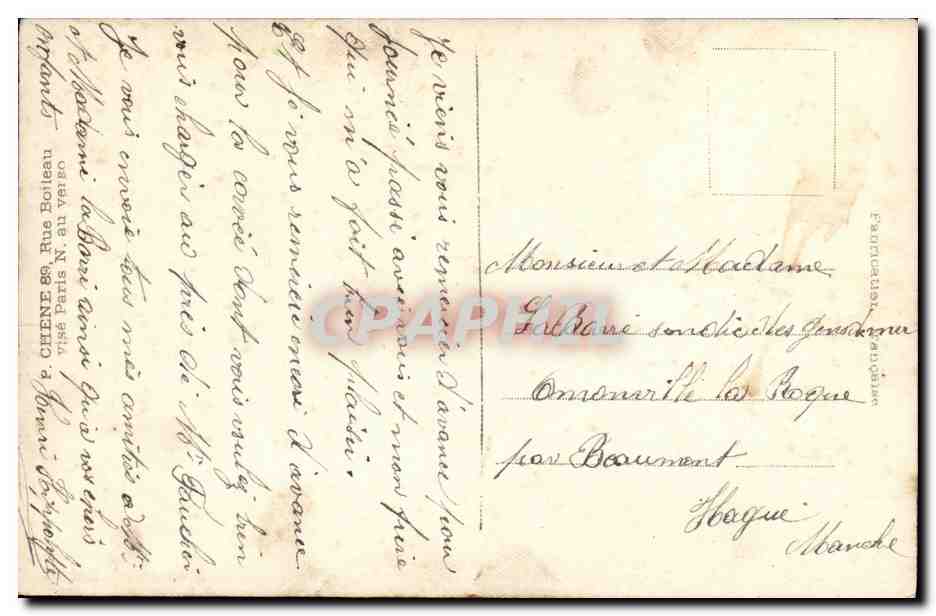 Je viens vous remercier d'avance pour
journée passé avec vous et mon frère
qui m'a fait bien plaisir.
Et je vous remercié encore d'avance
pour la corvée dont vous voulez bien
vous charger auprès de Mr
Je vous envoie tous mes amitiés a Mr
et Madame la Barri ainsi qu'a vos chers
enfants
à CHENE 89, Rue Boileau
Visé Paris N. au verso
Fabrication Française
Monsieur et Madame
La Barré des Gendarmer
Omonville la Rogue
par Beaumont
Hague
Manche
CPAPHIL